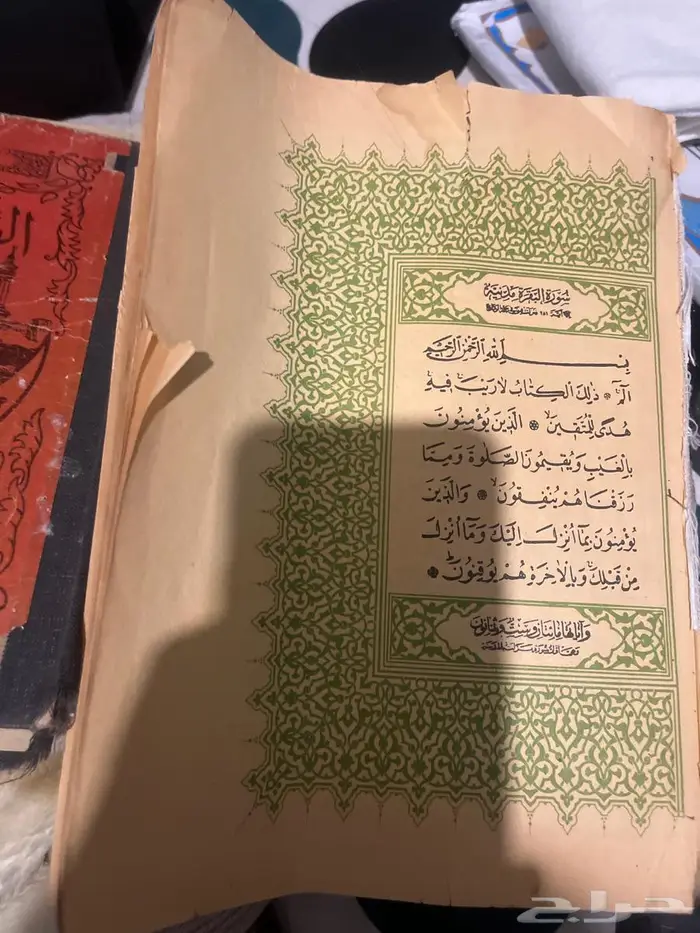 سُورَةُ البَقَرَةِ مَدَنِيَّة
بِسْمِ اللهِ الرَّحْمٰنِ الرَّحِيمِ
الٓمٓ ۞ ذٰلِكَ الْكِتَابُ لَا رَيْبَ فِيهِ
هُدًى لِلْمُتَّقِينَ ۞ الَّذِينَ يُؤْمِنُونَ
بِالْغَيْبِ وَيُقِيمُونَ الصَّلٰوةَ وَمِمَّا
رَزَقْنَاهُمْ يُنْفِقُونَ ۞ وَالَّذِينَ
يُؤْمِنُونَ بِمَا أُنْزِلَ إِلَيْكَ وَمَا أُنْزِلَ
مِنْ قَبْلِكَ وَبِالْاٰخِرَةِ هُمْ يُوقِنُونَ ۞
وَآيَاتُهَا مِائَتَانِ وَسِتٌّ وَثَمَانُونَ
حراج